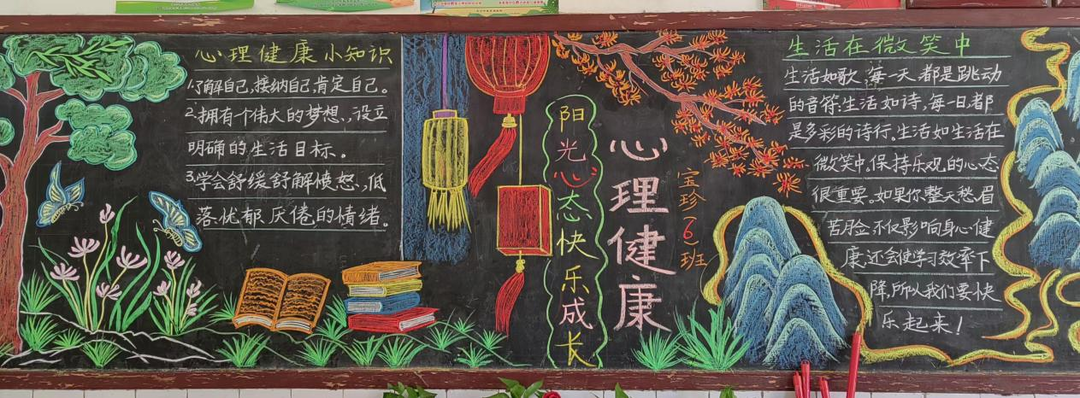 心理健康小知识
1.了解自己,接纳自己,肯定自己。
2.拥有个伟大的梦想、设立
明确的生活目标。
3.学会舒缓舒解愤怒、低
落、忧郁、厌倦的情绪。
阳光心态快乐成长
心理健康
宝珍(6)班
生活在微笑中
生活如歌,每一天都是跳动
的音符,生活如诗,每一日都
是多彩的诗行,生活如生活在
微笑中,保持乐观的心态
很重要。如果你整天愁眉
苦脸,不仅影响身心健
康,还会使学习效率下
降,所以我们要快
乐起来!